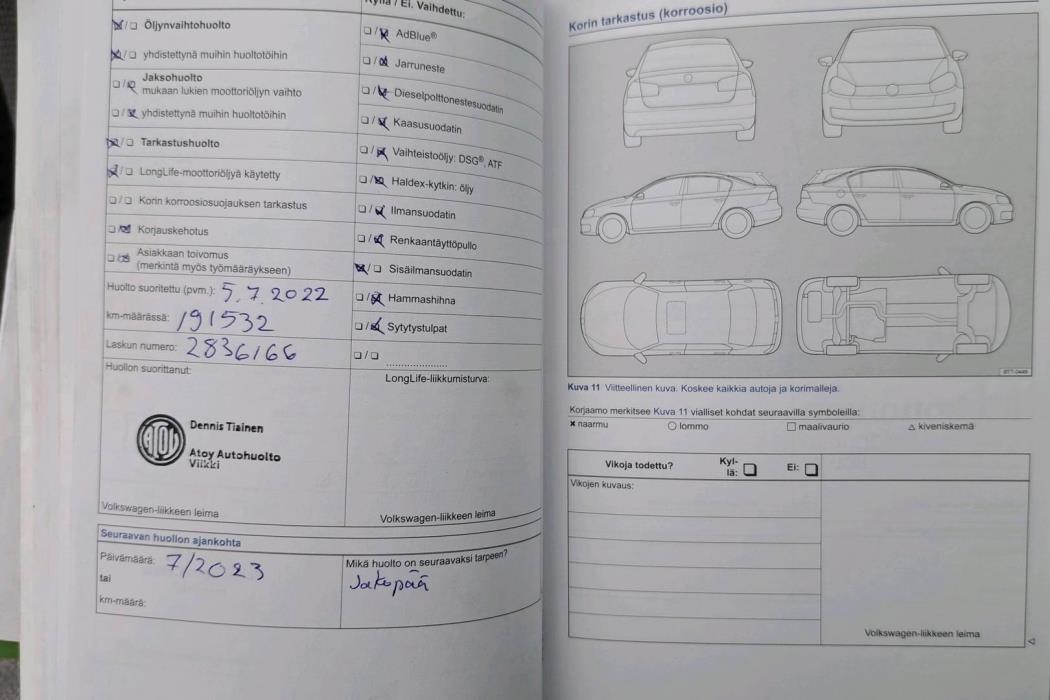 Kyllä / Ei. Vaihdettu:
Öljynvaihtohuolto
yhdistettynä muihin huoltotöihin
Jaksohuolto
mukaan lukien moottoriöljyn vaihto
yhdistettynä muihin huoltotöihin
Tarkastushuolto
LongLife-moottoriöljyä käytetty
Korin korroosiosuojauksen tarkastus
Korjauskehotus
Asiakkaan toivomus
(merkintä myös työmääräykseen)
Huolto suoritettu (pvm.): 5.7.2022
km-määrässä: 191532
Laskun numero: 2836166
Huollon suorittanut:
Dennis Tiainen
Atoy Autohuolto
Viikki
Volkswagen-liikkeen leima
AdBlue®
Jarruneste
Dieselpolttonestesuodatin
Kaasusuodatin
Vaihteistoöljy: DSG®, ATF
Haldex-kytkin: öljy
Ilmansuodatin
Renkaantäyttöpullo
Sisäilmansuodatin
Hammashihna
Sytytystulpat
LongLife-liikkumisturva:
Volkswagen-liikkeen leima
Seuraavan huollon ajankohta
Päivämäärä: 7/2023
tai
km-määrä:
Mikä huolto on seuraavaksi tarpeen?
Jakopää
Korin tarkastus (korroosio)
Kuva 11 Viitteellinen kuva. Koskee kaikkia autoja ja korimalleja.
Korjaamo merkitsee Kuva 11 vialliset kohdat seuraavilla symboleilla:
× naarmu ○ lommo □ maalivaurio △ kiveniskemä
Vikoja todettu? Kyl-
lä: Ei:
Vikojen kuvaus:
Volkswagen-liikkeen leima